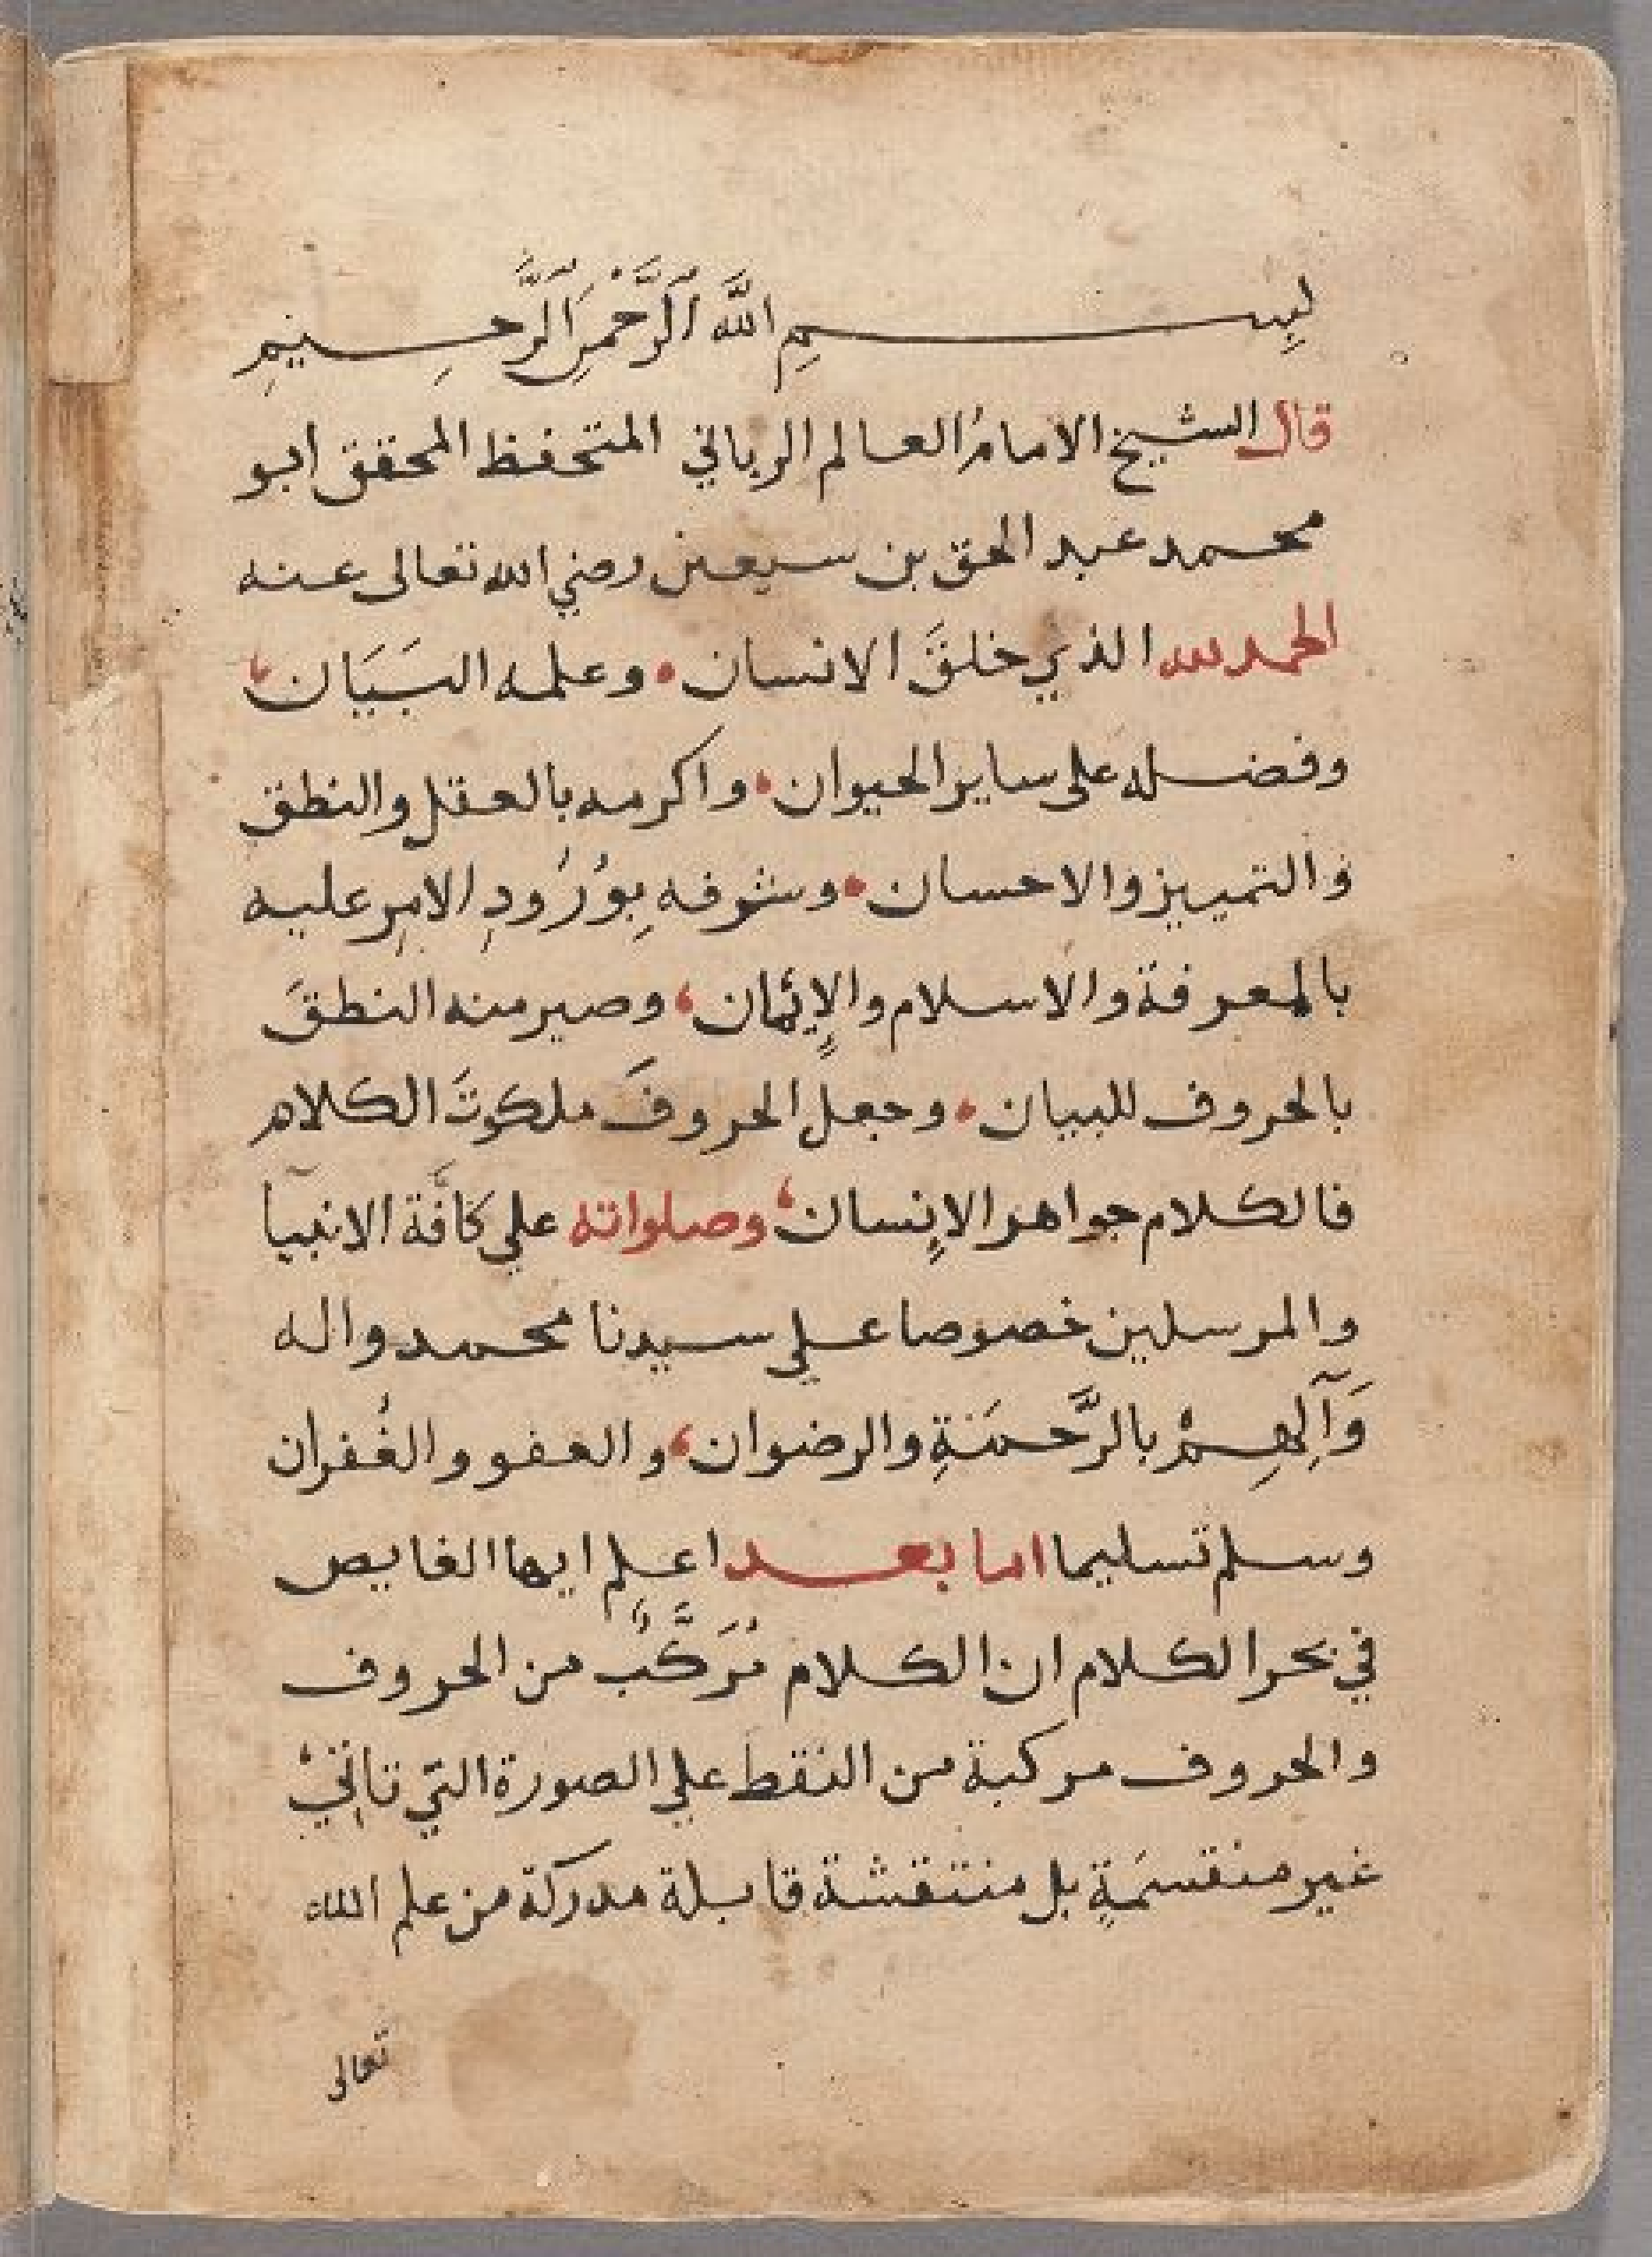 بِسمِ اللَّه الرَّحْمَنِ الرَّحِيمِ
قال الشيخ الامامُ العالم الرباني المتحفظ المحقق ابو
محمد عبد الحق بن سبعين رضي الله تعالى عنه
الحمد لله الذي خلقَ الانسان • وعلمه البَيَان ،
وفضله على ساير الحيوان • واكرمه بالعقل والنطق
والتمييز والاحسان • وشرفه بِوُرُودِ الامرِ عليه
بالمعرفة والاسلام والإيمان ، وصير منه النطقَ
بالحروف للبيان • وجعل الحروفَ ملكوتَ الكلام
فالكلام جواهر الإنسان ، وصلواته علي كافَّة الانبيآ
والمرسلين خصوصا علي سيدنا محمد واله
وَآلِهِمْ بالرَّحمَةِ والرضوان ، والعفو والغُفران
وسلم تسليما اما بعد اعلم ايها الغايص
في بحر الكلام ان الكلام مُرَكَّبٌ من الحروف
والحروف مركبة من النقط علي الصورة التي
غير منقسمَةٍ بل منتقشة قابلة مدركة من علم الله
تعالى